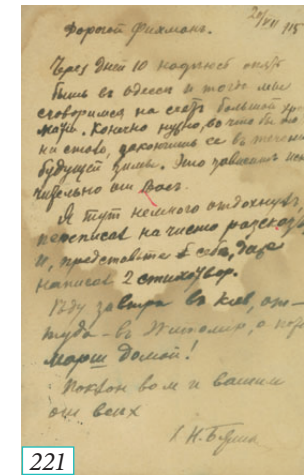 20/VII 915
Дорогой Фихман.
Через дней 10 надеюсь опять
быть въ Одессе и тогда мы
сговоримся на счетъ большой
Конечно нужно, во что бы то
ни стало, закончить ее в течение
будущей зимы. Это зависитъ
отъ Васъ.
Я тут немного отдохнулъ,
переписал на чисто рассказ
и, представьте себе, даже
написал 2 стихотвор.
Еду завтра въ Киев, от-
туда - въ Житомир, а потом
марш домой!
Поклон вам и вашим
от всех
Х. Н. Бялик
221